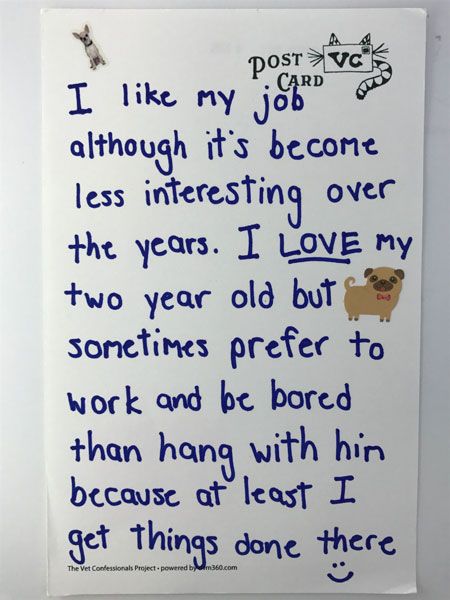 POST
CARD
VC
I like my job
although it's become
less interesting over
the years. I LOVE my
two year old but
sometimes prefer to
work and be bored
than hang with him
because at least I
get things done there
The Vet Confessionals Project • powered by